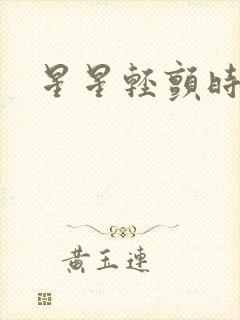 星星輕顫時
黃玉連